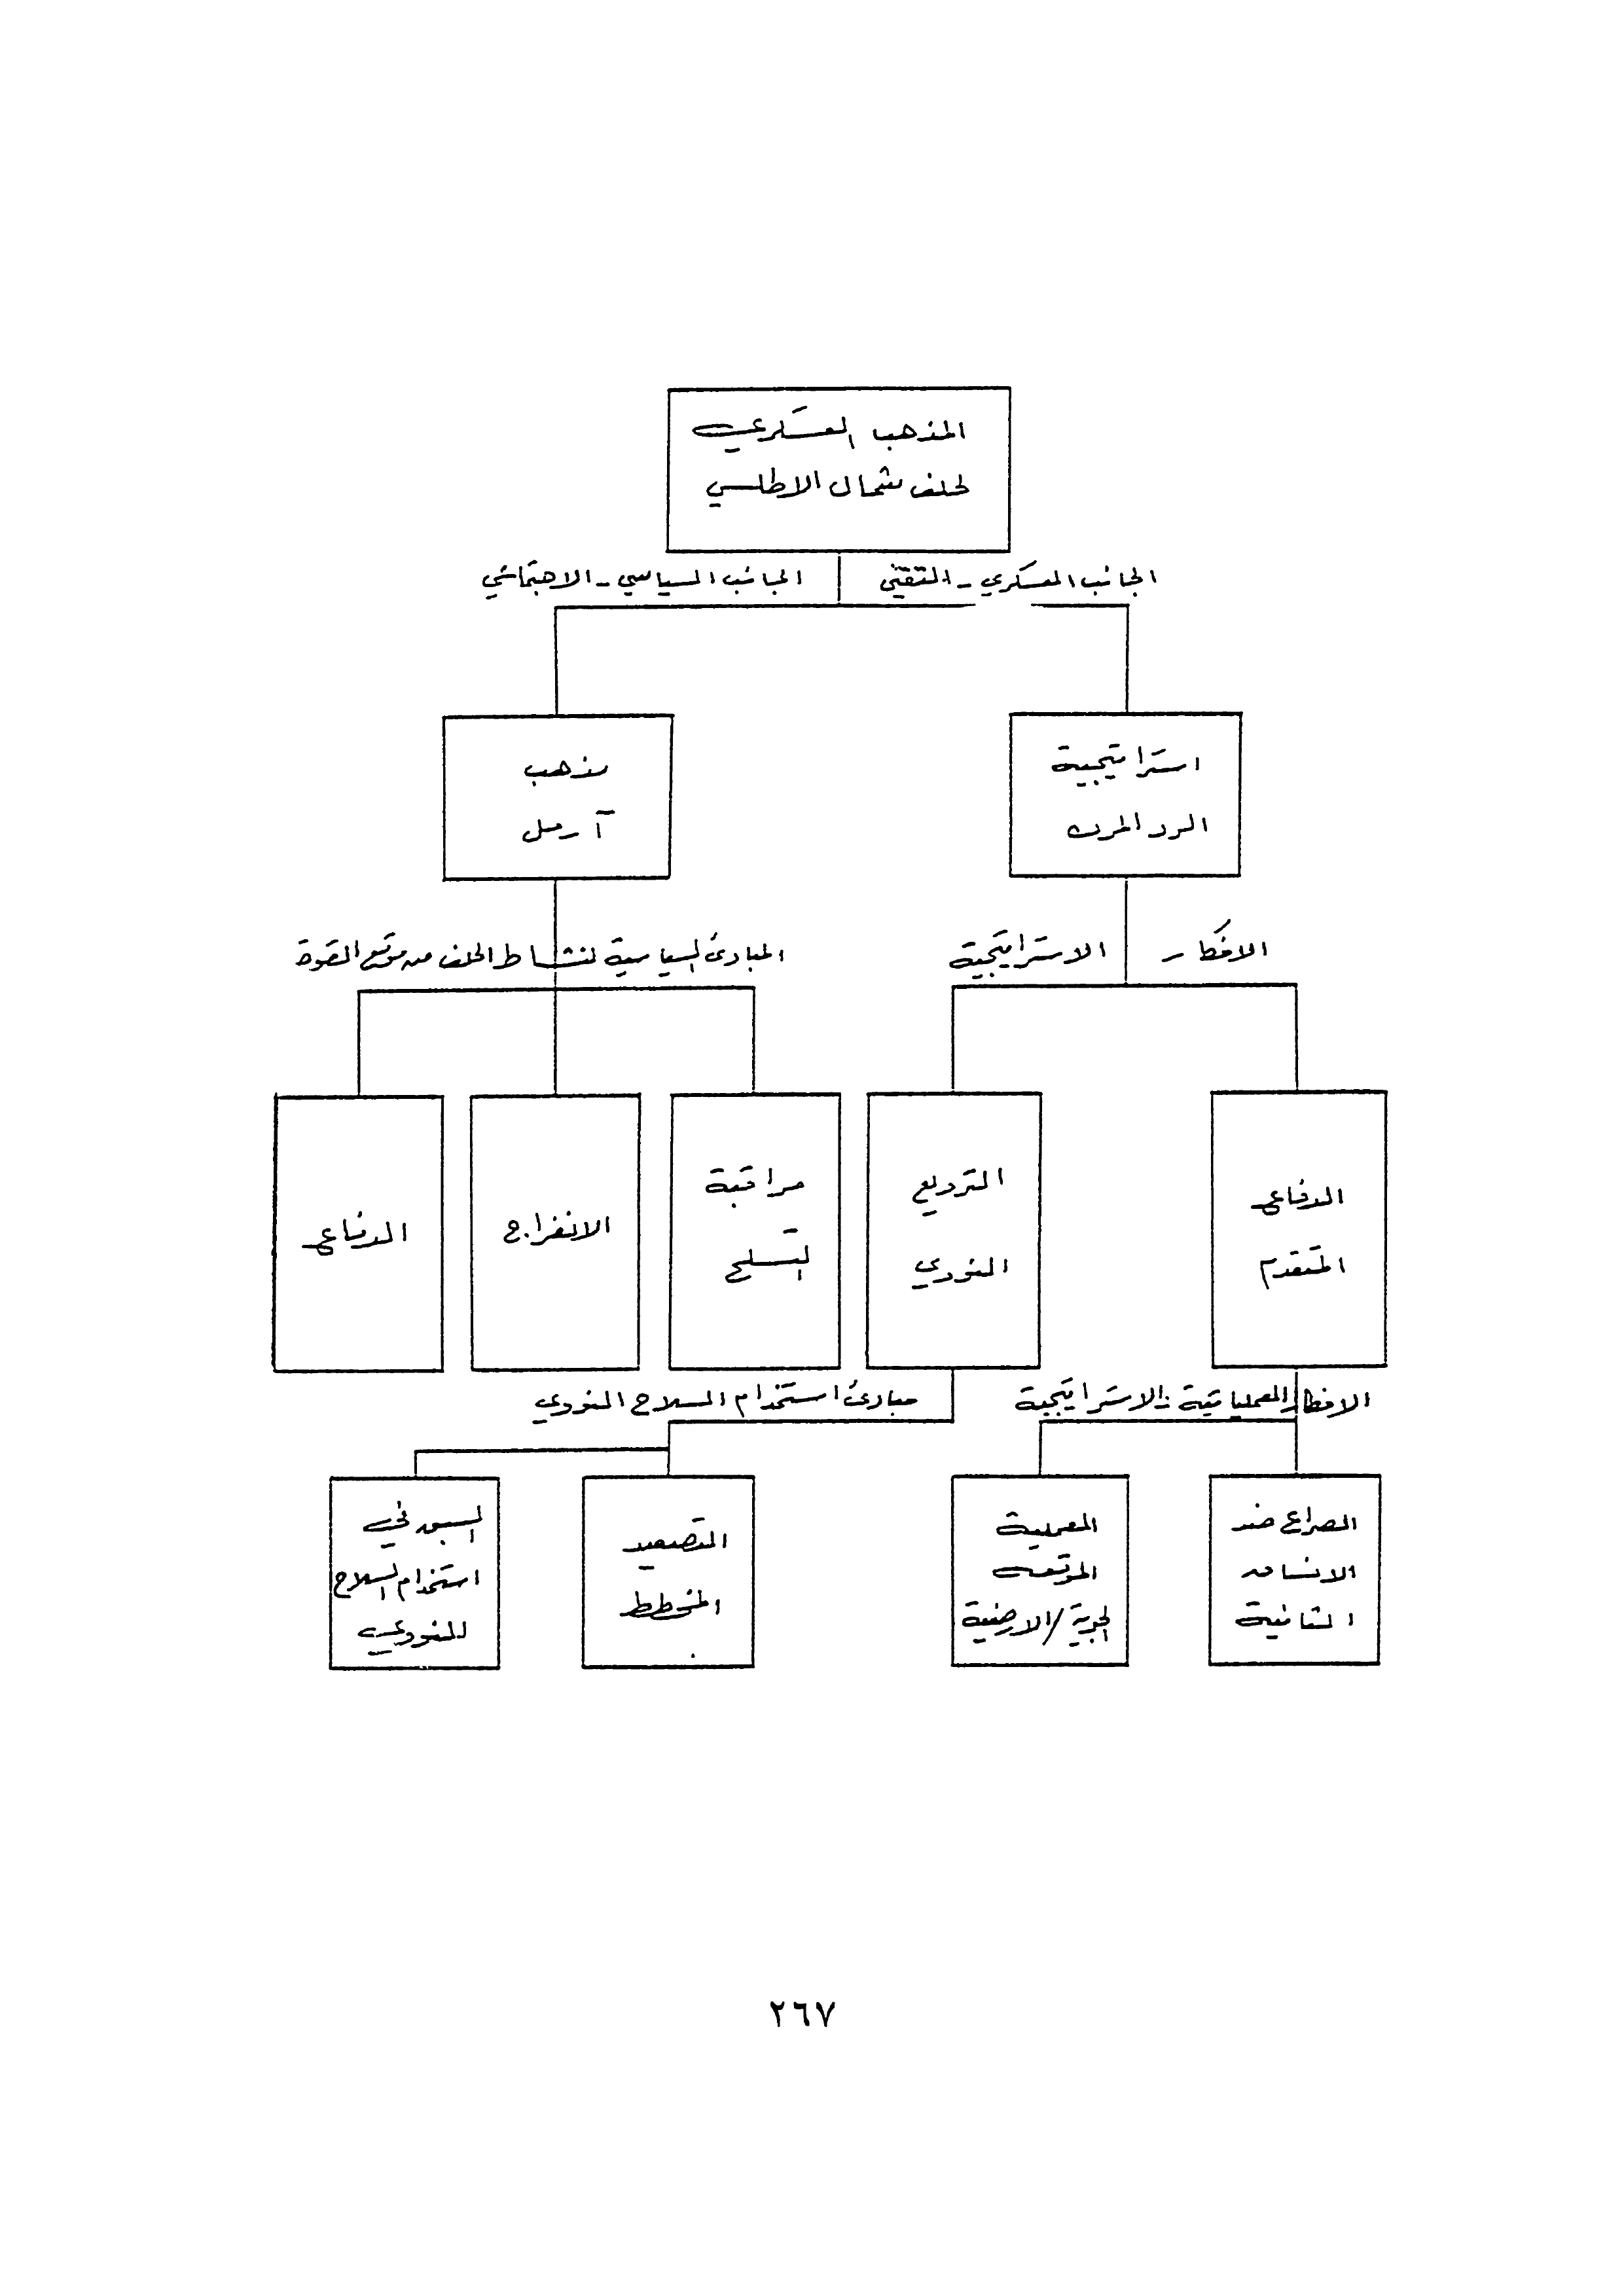 المذهب العسكري
لحلف شمال الاطلسي
الجانب العسكري - التقني
الجانب السياسي - الاجتماعي
استراتيجية
الرد المرن
مذهب
آرمل
الافكار الاستراتيجية
المبادئ السياسية لنشاط الحلف من موقع القوة
الدفاع
المتقدم
الترديع
النووي
مراقبة
التسلح
الانفراج
الدفاع
الافكار العملياتية - الاستراتيجية
مبادئ استخدام السلاح النووي
الصراع ضد
الانساق
الثانية
العملية
الجوية / الارضية
التصعيد
المخطط
السبق في
استخدام السلاح
النووي
٢٦٧